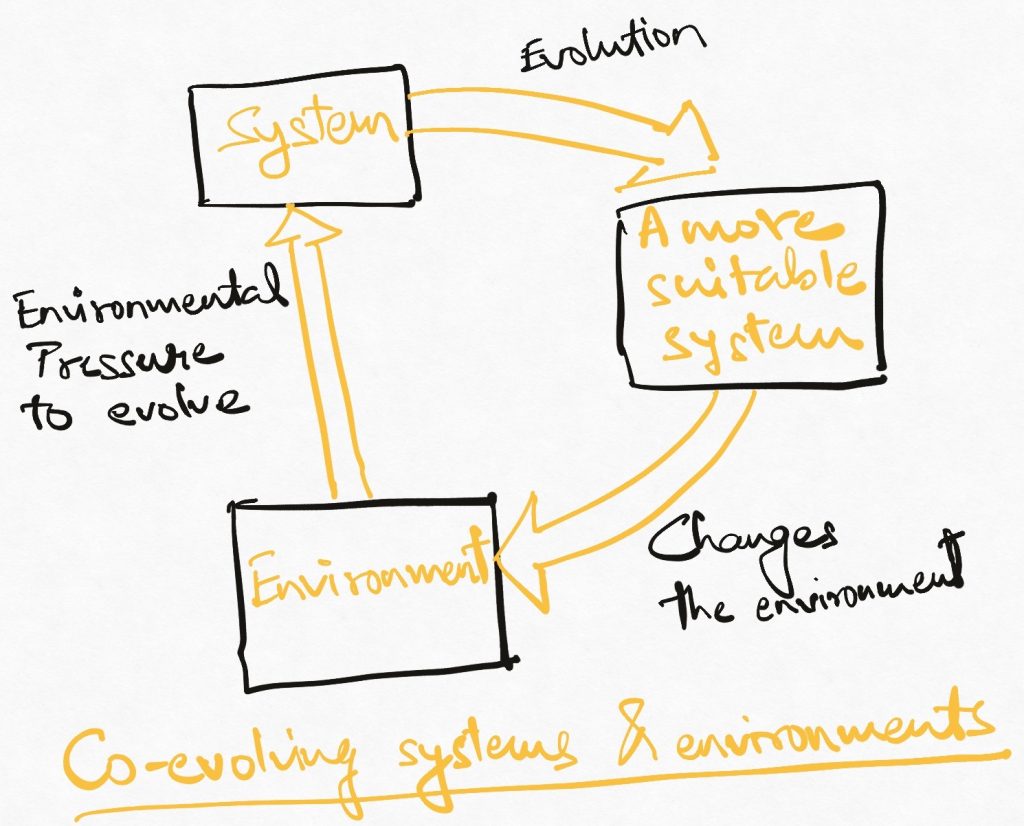 Evolution
System
A more
suitable
system
Environmental
Pressure
to evolve
Environment
Changes
the environment
Co-evolving systems & environments